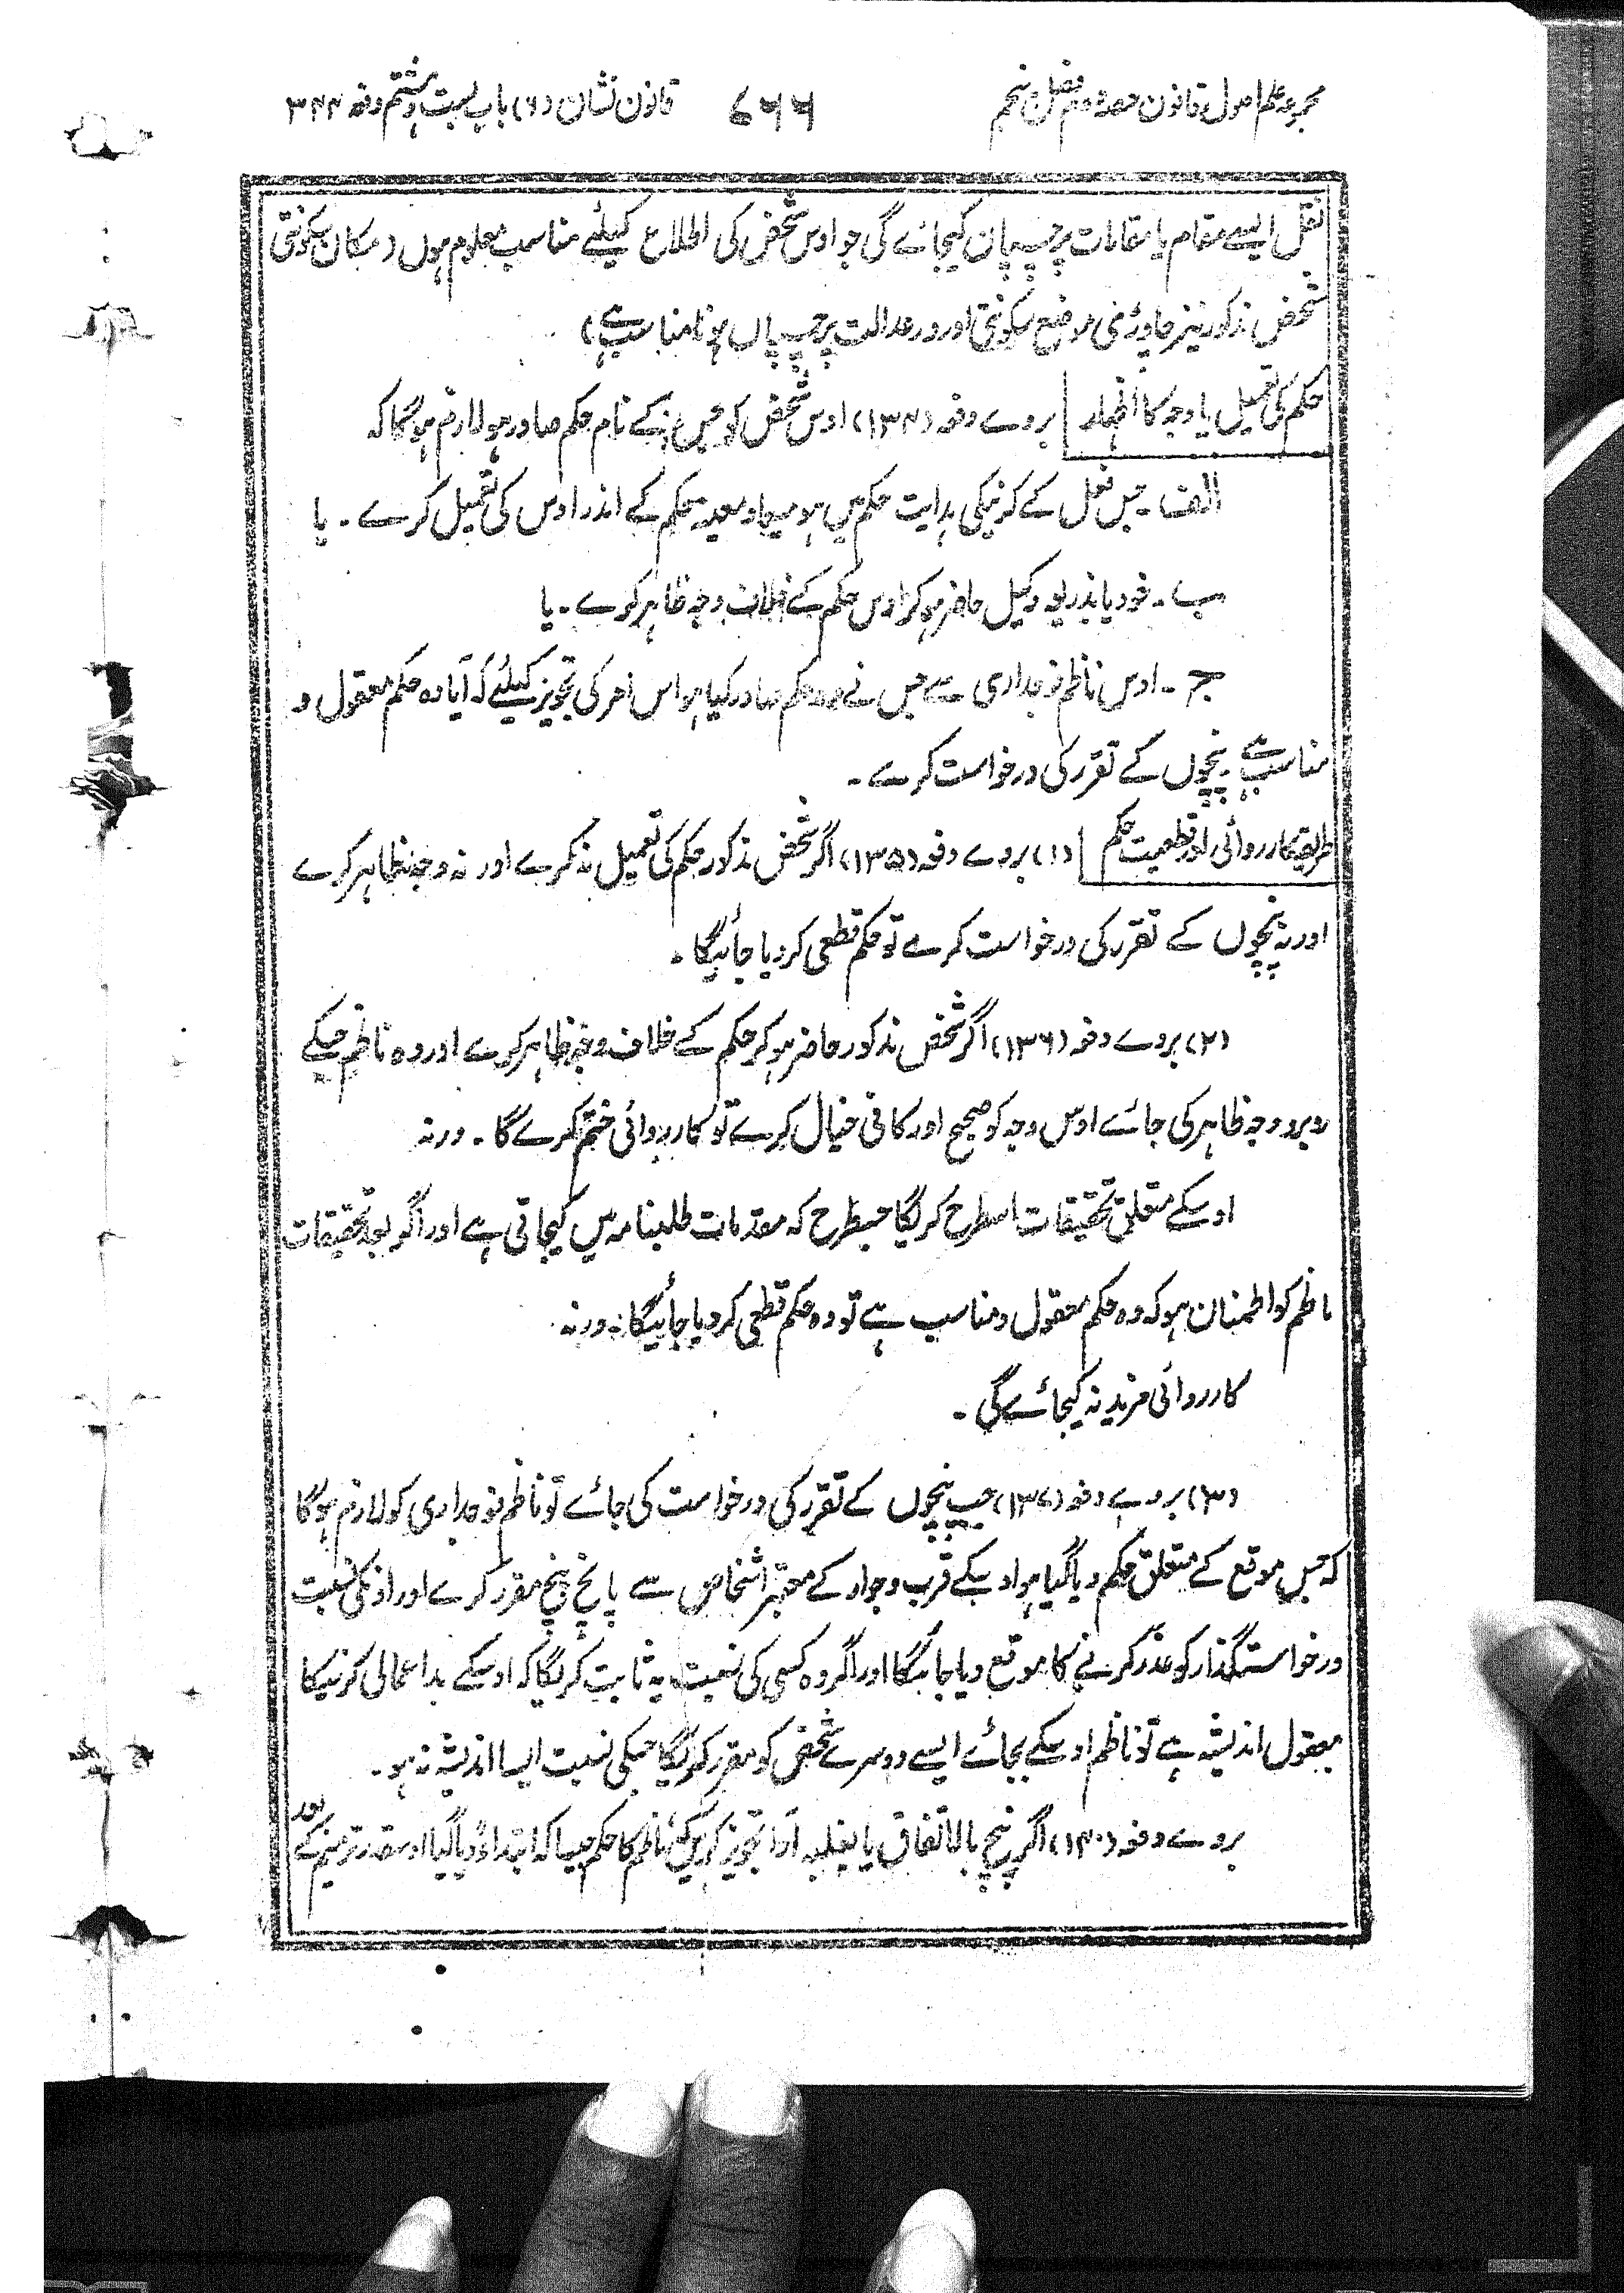 مجموعہ علم اصول قانون حصہ دوم فصل پنجم ۶۶۶ قانون نشان (۶) باب بست و ہشتم دفعہ ۳۴۴
نقل ایسے مقام یا مقامات پر چسپان کیجائے گی جو اوس شخص کی اطلاع کیلئے مناسب معلوم ہوں (مکان سکونتی
شخص مذکور نیز چاوڑی موضع سکونتی اور در عدالت پر چسپاں ہونا مناسب ہے)
حکم کی تعمیل یا وجہ کا اظہار بروے دفعہ (۱۳۴) اوس شخص کو جس کے نام حکم صادر ہو لازم ہوگا کہ
الف ۔ جس فعل کے کرنیکی ہدایت حکم میں ہو میعاد معینہ حکم کے اندر اوس کی تعمیل کرے ۔ یا
ب ۔ خود یا بذریعہ وکیل حاضر ہوکر اوس حکم کے خلاف وجہ ظاہر کرے ۔ یا
ج ۔ اوس ناظم فوجداری سے جس نے وہ حکم صادر کیا ہو اس امر کی تجویز کیلئے کہ آیا وہ حکم معقول و
مناسب ہے پنچوں کے تقرر کی درخواست کرے ۔
طریقہ کارروائی اور قطعیت حکم (۱) بروے دفعہ (۱۳۵) اگر شخص مذکور حکم کی تعمیل نہ کرے اور نہ وجہ ظاہر کرے
اور نہ پنچوں کے تقرر کی درخواست کرے تو حکم قطعی کر دیا جائیگا ۔
(۲) بروے دفعہ (۱۳۶) اگر شخص مذکور حاضر ہوکر حکم کے خلاف وجہ ظاہر کرے اور وہ ناظم جسکے
روبرو وجہ ظاہر کی جائے اوس وجہ کو صحیح اور کافی خیال کرے تو کارروائی ختم کرے گا ۔ ورنہ
اوسکے متعلق تحقیقات اسطرح کریگا جسطرح کہ مقدمات طلبنامہ میں کیجاتی ہے اور اگر بعد تحقیقات
ناظم کو اطمنان ہو کہ وہ حکم معقول و مناسب ہے تو وہ حکم قطعی کر دیا جائیگا ۔ ورنہ
کارروائی مزید نہ کیجائے گی ۔
(۳) بروے دفعہ (۱۳۷) جب پنچوں کے تقرر کی درخواست کی جائے تو ناظم فوجداری کو لازم ہوگا
کہ جس موقع کے متعلق حکم دیا گیا ہو اوسکے قرب و جوار کے معتبر اشخاص سے پانچ پنچ مقرر کرے اور اونکی نسبت
درخواست گذار کو عذر کرنے کا موقع دیا جائیگا اور اگر وہ کسی کی نسبت یہ ثابت کریگا کہ اوسکے بد اعمالی کرنیکا
معقول اندیشہ ہے تو ناظم اوسکے بجائے ایسے دوسرے شخص کو مقرر کریگا جسکی نسبت ایسا اندیشہ نہ ہو ۔
بروے دفعہ (۱۴۰) اگر پنچ بالاتفاق یا بغلبہ آرا تجویز کریں کہ ناظم کا حکم جیسا کہ ابتداءً دیا گیا اوسقدر ترمیم کے بعد